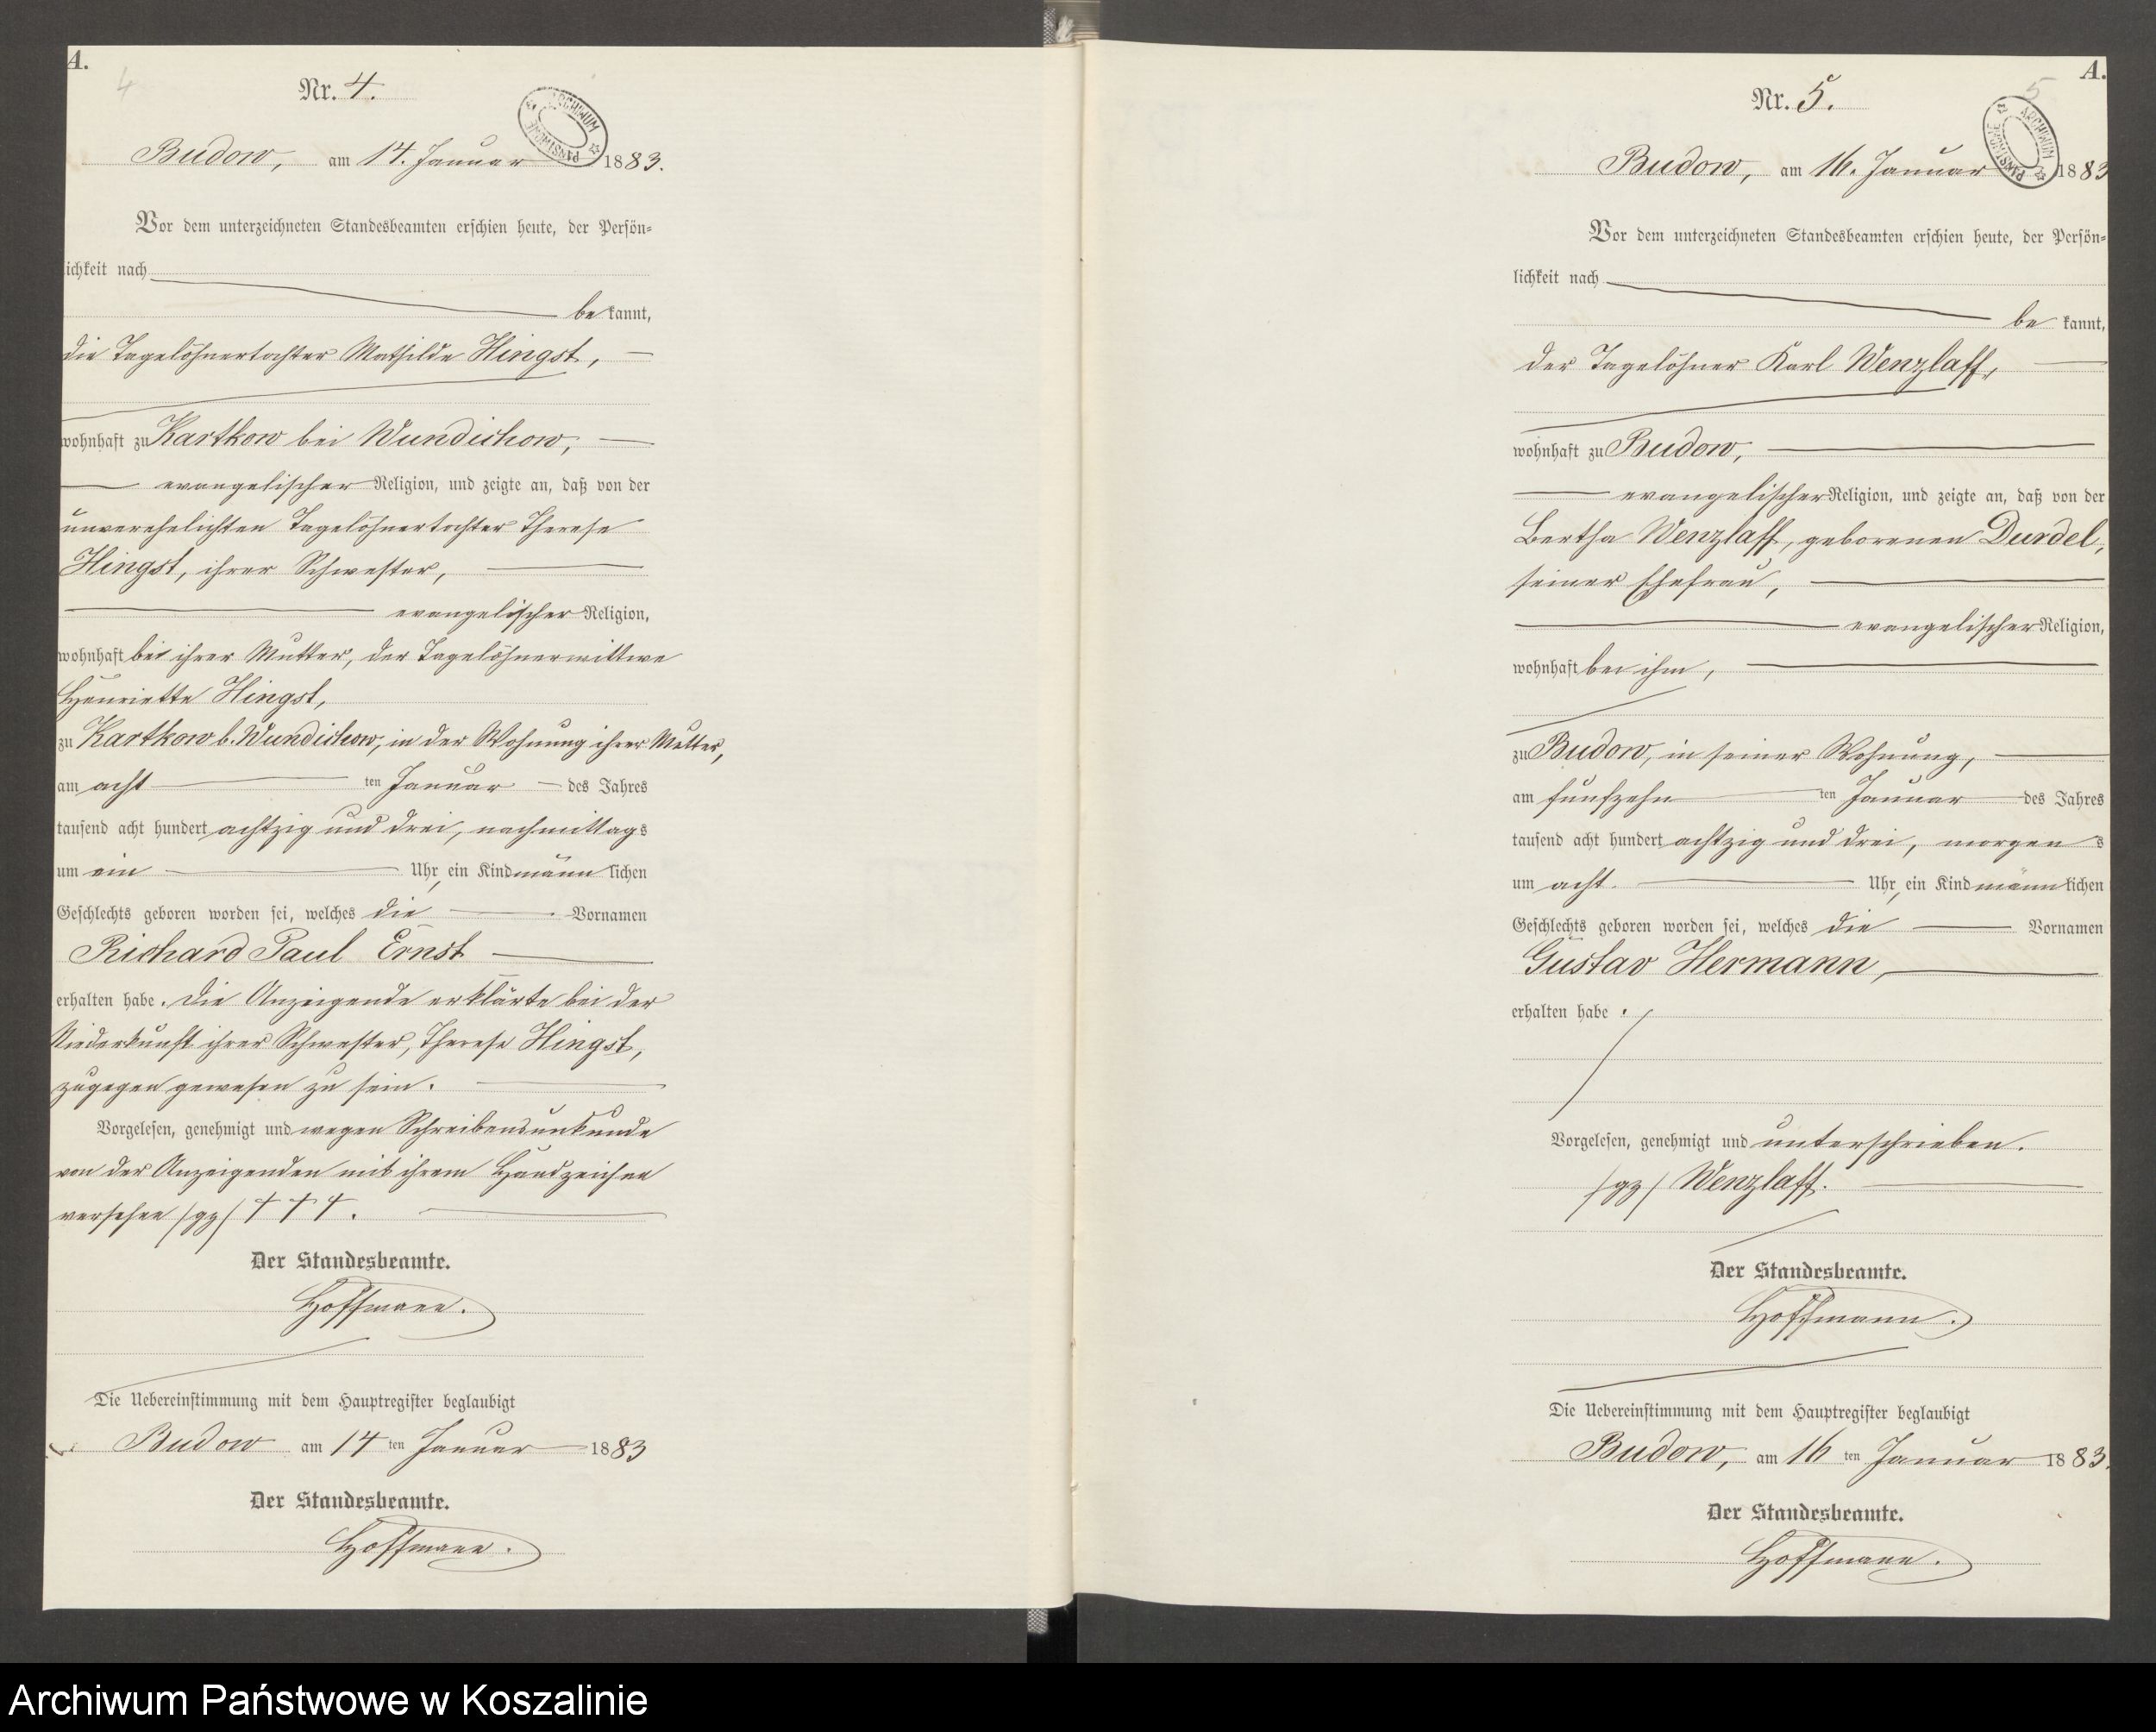 A.
4
Nr. 4.
ARCHIWUM PAŃSTWOWE
Budow, am 14. Januar 1883.
Vor dem unterzeichneten Standesbeamten erschien heute, der Persön=
lichkeit nach
be kannt,
die Tagelöhnertochter Mathilde Hingst,
wohnhaft zu Kartkow bei Wundichow,
evangelischer Religion, und zeigte an, daß von der
unverehelichten Tagelöhnertochter Therese
Hingst, ihrer Schwester,
evangelischer Religion,
wohnhaft bei ihrer Mutter, der Tagelöhnerwittwe
Henriette Hingst,
zu Kartkow b. Wundichow, in der Wohnung ihrer Mutter,
am acht ten Januar des Jahres
tausend acht hundert achtzig und drei, nachmittags
um ein Uhr, ein Kind männ lichen
Geschlechts geboren worden sei, welches die Vornamen
Richard Paul Ernst
erhalten habe. Die Anzeigende erklärte bei der
Niederkunft ihrer Schwester, Therese Hingst,
zugegen gewesen zu sein.
Vorgelesen, genehmigt und wegen Schreibensunkunde
von der Anzeigenden mit ihrem Handzeichen
versehen /gz/ † † †.
Der Standesbeamte.
Hoffmann.
Die Uebereinstimmung mit dem Hauptregister beglaubigt
Budow am 14 ten Januar 1883
Der Standesbeamte.
Hoffmann.
A.
5
Nr. 5.
ARCHIWUM PAŃSTWOWE
Budow, am 16. Januar 1883
Vor dem unterzeichneten Standesbeamten erschien heute, der Persön=
lichkeit nach
be kannt,
der Tagelöhner Karl Wenzlaff,
wohnhaft zu Budow,
evangelischer Religion, und zeigte an, daß von der
Bertha Wenzlaff, geborenen Durdel,
seiner Ehefrau,
evangelischer Religion,
wohnhaft bei ihm,
zu Budow, in seiner Wohnung,
am fünfzehn ten Januar des Jahres
tausend acht hundert achtzig und drei, morgens
um acht Uhr, ein Kind männ lichen
Geschlechts geboren worden sei, welches die Vornamen
Gustav Hermann,
erhalten habe.
Vorgelesen, genehmigt und unterschrieben.
/gz/ Wenzlaff.
Der Standesbeamte.
Hoffmann.
Die Uebereinstimmung mit dem Hauptregister beglaubigt
Budow, am 16 ten Januar 1883.
Der Standesbeamte.
Hoffmann.
Archiwum Państwowe w Koszalinie